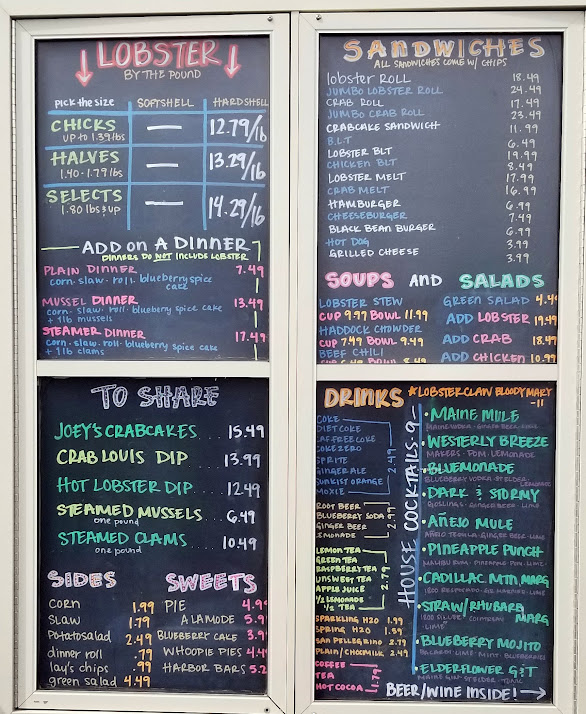 LOBSTER
BY THE POUND
pick the size SOFTSHELL HARDSHELL
CHICKS — 12.79/lb
UP to 1.39lbs
HALVES — 13.29/lb
1.40-1.79lbs
SELECTS — 14.29/lb
1.80 lbs & up
ADD ON A DINNER
DINNERS DO NOT INCLUDE LOBSTER
PLAIN DINNER 7.49
corn · slaw · roll · blueberry spice
cake
MUSSEL DINNER 13.49
corn · slaw · roll · blueberry spice cake
+ 1 lb mussels
STEAMER DINNER 17.49
corn · slaw · roll · blueberry spice cake
+ 1 lb clams
TO SHARE
JOEY'S CRABCAKES ... 15.49
CRAB LOUIS DIP ... 13.99
HOT LOBSTER DIP 12.49
STEAMED MUSSELS ... 6.49
one pound
STEAMED CLAMS ... 10.49
one pound
SIDES
CORN 1.99
SLAW 1.79
Potatosalad 2.49
dinner roll .79
lay's chips .99
green salad 4.49
SWEETS
PIE 4.99
A LA MODE 5.9
BLUEBERRY CAKE 3.9
WHOOPIE PIES 4.4
HARBOR BARS 5.2
SANDWICHES
ALL SANDWICHES COME W/ CHIPS
lobster ROLL 18.49
JUMBO LOBSTER ROLL 24.49
CRAB ROLL 17.49
JUMBO CRAB ROLL 23.49
CRABCAKE SANDWICH 11.99
B.L.T 6.49
LOBSTER BLT 19.99
CHICKEN BLT 8.49
LOBSTER MELT 17.99
CRAB MELT 16.99
HAMBURGER 6.99
CHEESEBURGER 7.49
BLACK BEAN BURGER 6.99
HOT DOG 3.99
GRILLED CHEESE 3.99
SOUPS AND SALADS
LOBSTER STEW
CUP 9.97 BOWL 11.99
HADDOCK CHOWDER
CUP 7.49 BOWL 9.49
BEEF CHILI
CUP 6.49 BOWL 8.49
GREEN SALAD 4.4
ADD LOBSTER 19.49
ADD CRAB 18.49
ADD CHICKEN 10.99
DRINKS
*LOBSTER CLAW BLOODY MARY
-11
COKE
DIET COKE
CAF FREE COKE
COKE ZERO
SPRITE
GINGER ALE
SUNKIST ORANGE
MOXIE
2.49
ROOT BEER
BLUEBERRY SODA
GINGER BEER
LEMONADE
2.99
LEMON TEA
GREEN TEA
RASPBERRY TEA
UNSWEET TEA
APPLE JUICE
1/2 LEMONADE
1/2 TEA
2.79
SPARKLING H2O 1.99
SPRING H2O 1.59
SAN PELLEGRINO 2.79
PLAIN/CHOC MILK 2.49
COFFEE
TEA
HOT COCOA
1.79
HOUSE COCKTAILS-9-
• MAINE MULE
MAINE VODKA · GINGER BEER · LIME
• WESTERLY BREEZE
MAKERS · POM · LEMONADE
• BLUEMONADE
BLUEBERRY VODKA ·
LEMONADE
• DARK & STORMY
GOSLINGS · GINGER BEER · LIME
• AÑEJO MULE
AÑEJO TEQUILA · GINGER BEER · LIME
• PINEAPPLE PUNCH
MALIBU RUM · PINEAPPLE · POM · LIME
• CADILLAC MTN MARG
• STRAW/RHUBARB
MARG
LIME
• BLUEBERRY MOJITO
BACARDI · LIME · MINT · BLUEBERRIES
• ELDERFLOWER G&T
MAINE GIN · ST ELDER · TONIC
BEER/WINE INSIDE! →